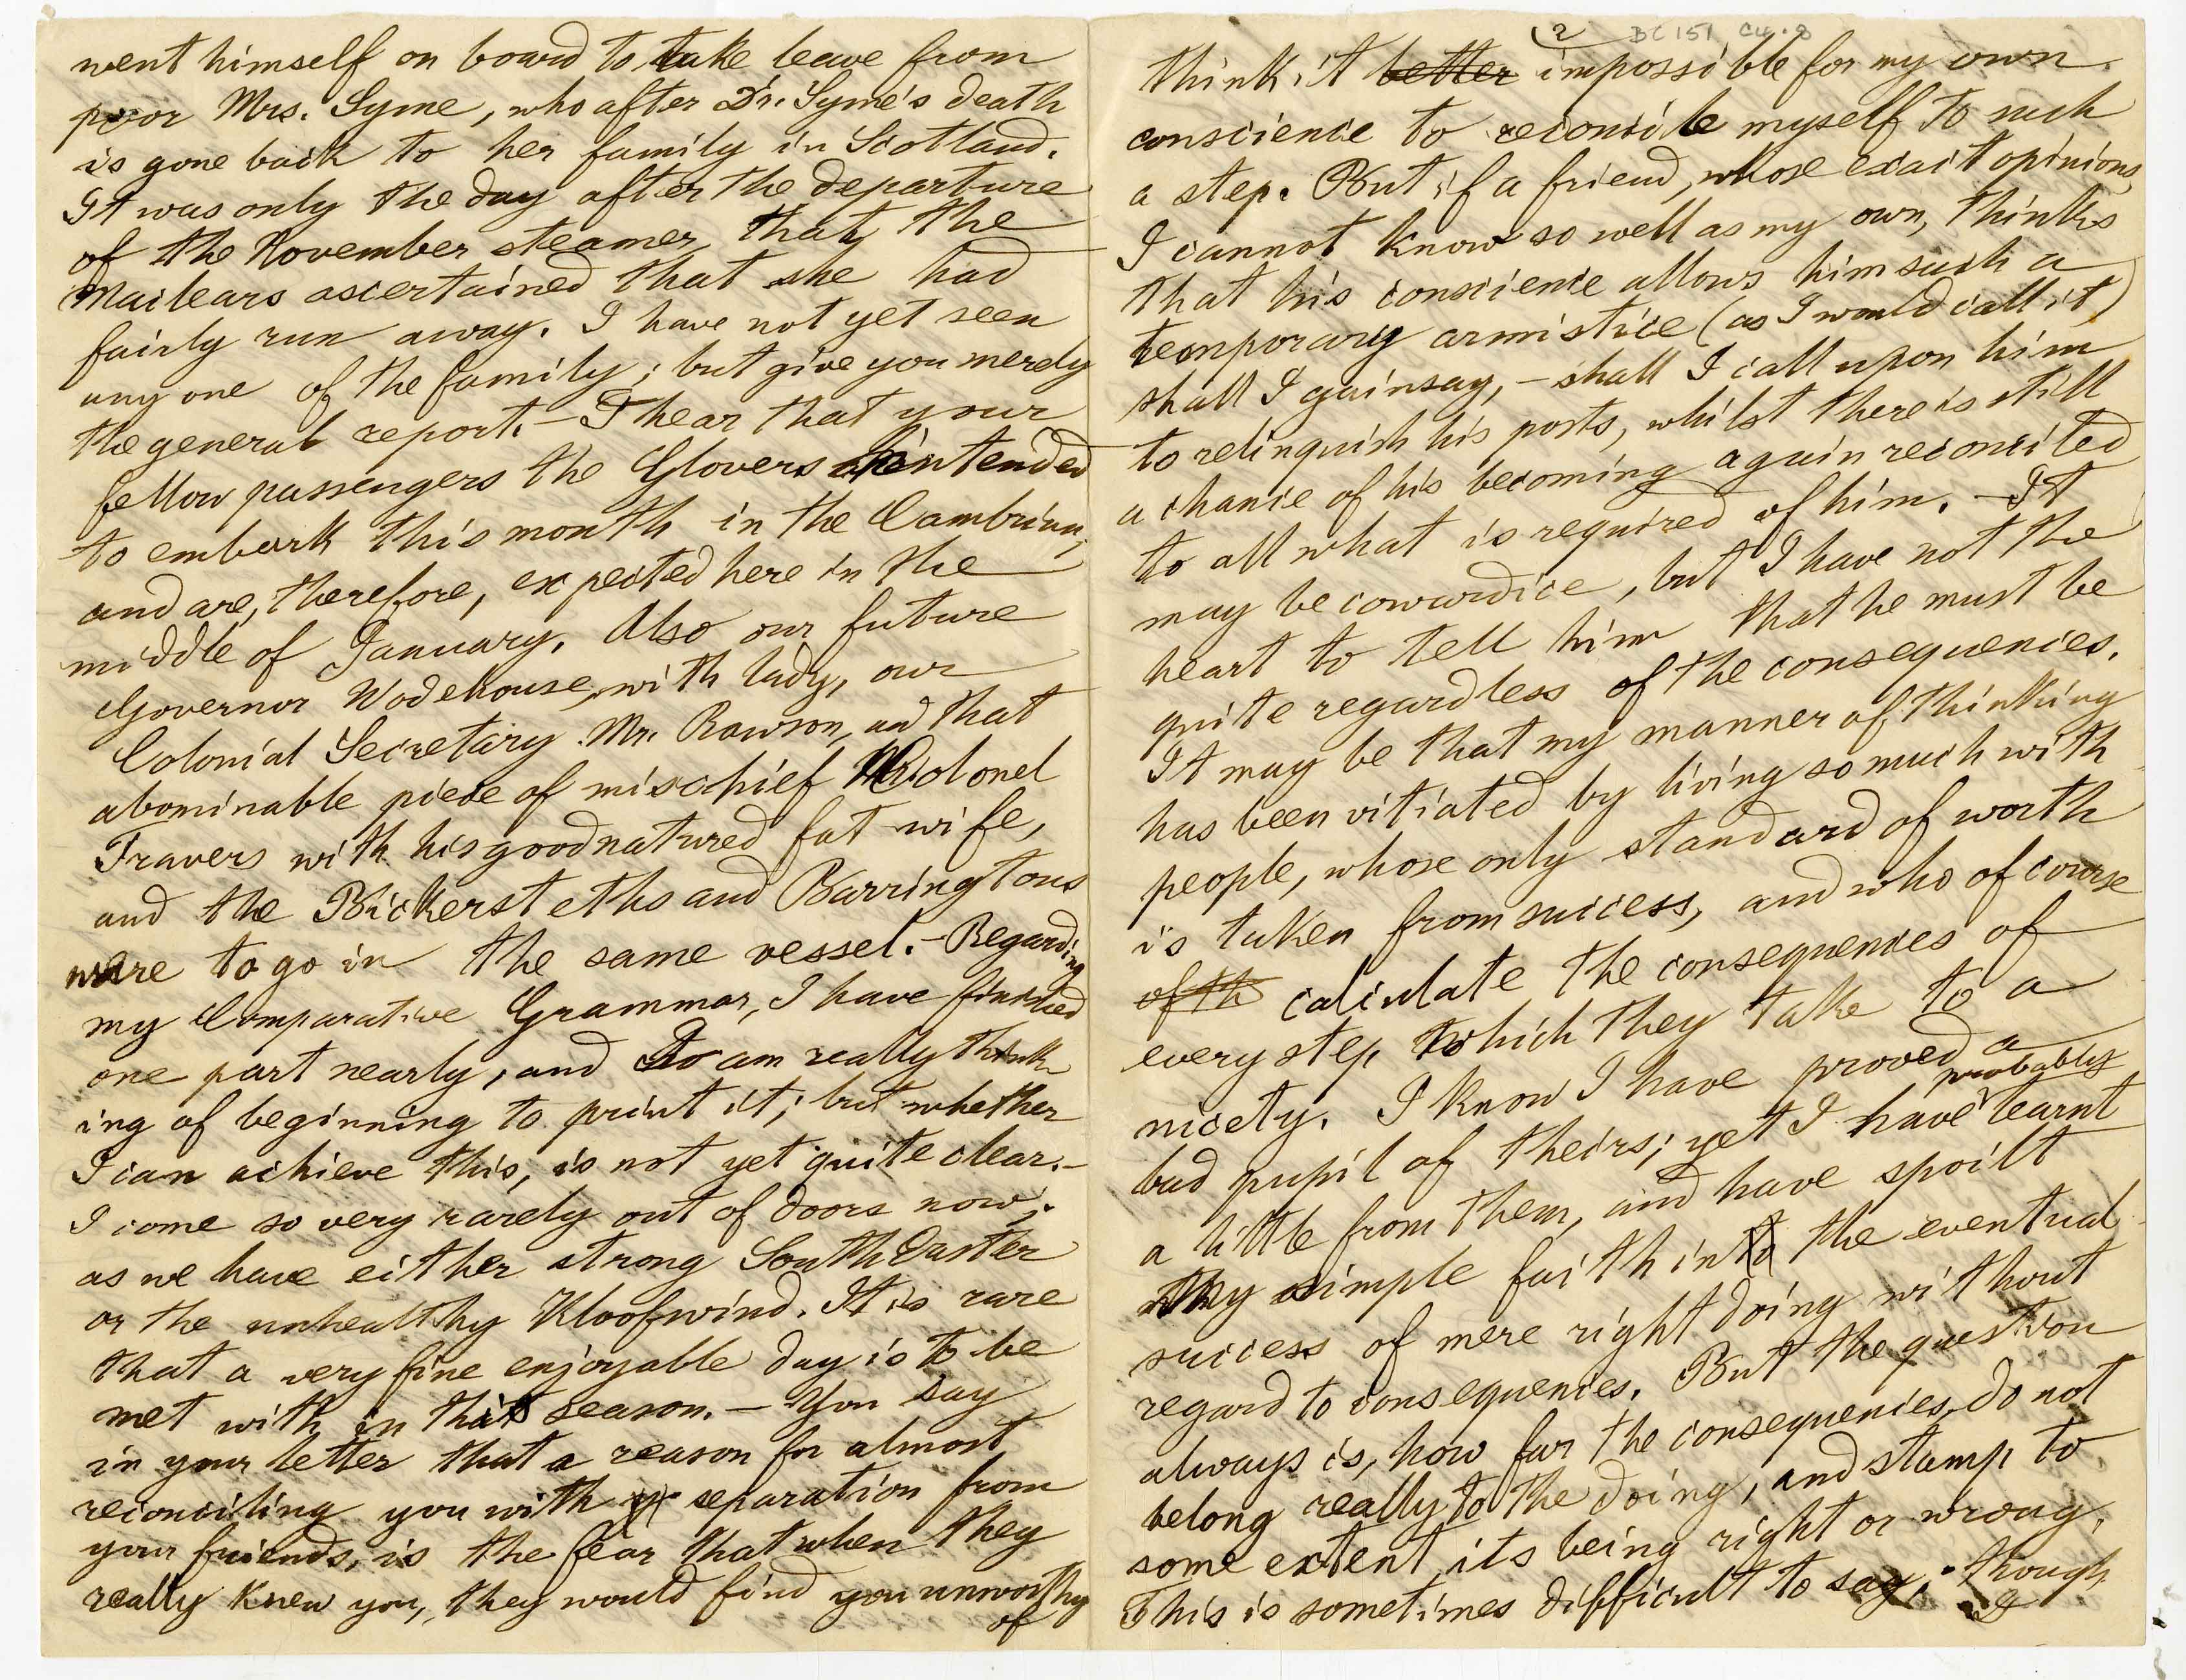 went himself on board to take leave from
poor Mrs. Syme, who after Dr. Syme's death
is gone back to her family in Scotland.
It was only the day after the departure
of the November steamer, that the
Maclears ascertained that she had
fairly run away. I have not yet seen
any one of the family; but give you merely
the general report. – I hear that your
fellow passengers the Glovers intended
to embark this month in the Cambrian,
and are, therefore, expected here in the
middle of January. Also our future
Governor Wodehouse, with lady, our
Colonial Secretary Mr. Rawson, and that
abominable piece of mischief Colonel
Travers with his goodnatured fat wife,
and the Bickersteths and Barringtons
were to go in the same vessel. – Regarding
my Comparative Grammar, I have finished
one part nearly, and am really think
ing of beginning to print it; but whether
I can achieve this, is not yet quite clear. –
I come so very rarely out of doors now;
as we have either strong South Easter
or the unhealthy Kloofwind. It is rare
that a very fine enjoyable day is to be
met with in this season. – You say
in your letter that a reason for almost
reconciling you with separation from
your friends, is the fear that when they
really knew you, they would find you unworthy
of
(2 BC 151 C4.8
think it better impossible for my own
conscience to reconcile myself to such
a step. But if a friend, whose exact opinions
I cannot know so well as my own, thinks
that his conscience allows him such a
temporary armistice (as I would call it)
shall I gainsay, – shall I call upon him
to relinquish his posts, whilst there is still
a chance of his becoming again reconciled
to all what is required of him. – It
may be cowardice, but I have not the
heart to tell him that he must be
quite regardless of the consequences.
It may be that my manner of thinking
has been vitiated by living so much with
people, whose only standard of worth
is taken from success, and who of course
of th calculate the consequences of
every step which they take to a
nicety. I know I have proved a
bad pupil of theirs; yet I have probably learnt
a little from them, and have spoilt
my simple faith in the eventual
success of mere right doing without
regard to consequences. But the question
always is, how far the consequences do not
belong really to the doing, and stamp to
some extent its being right or wrong.
This is sometimes difficult to say; though
I